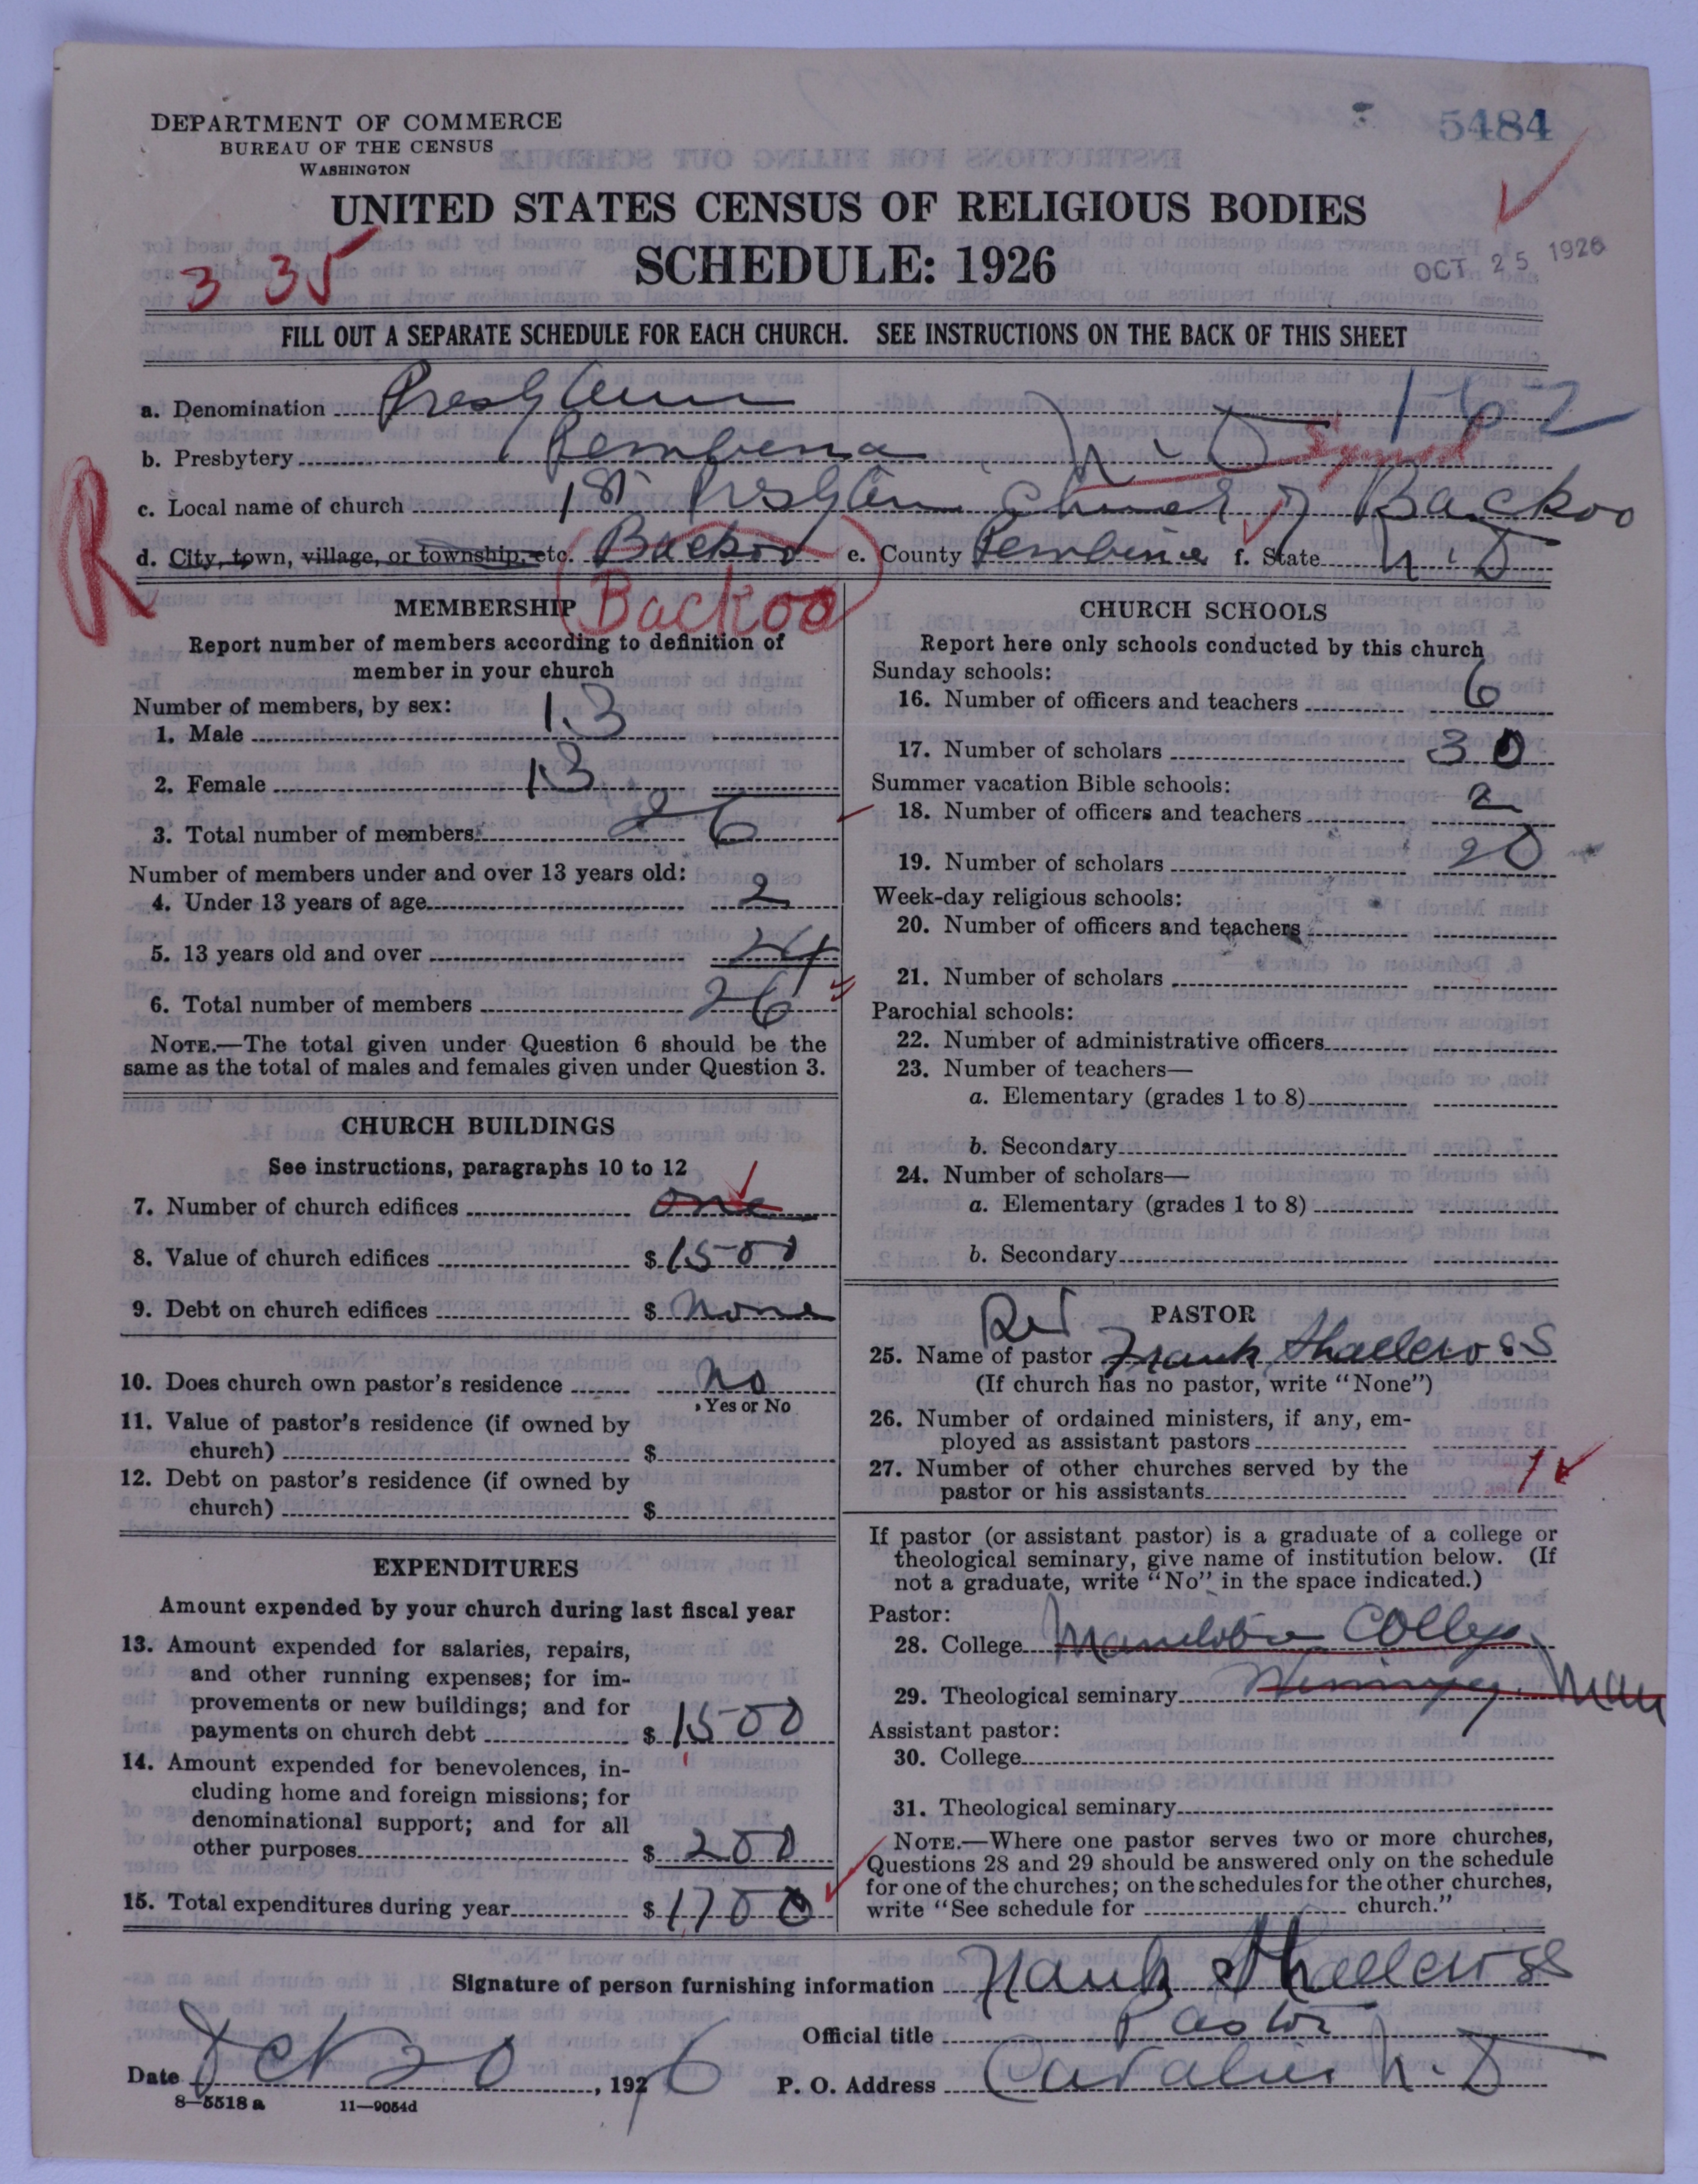 DEPARTMENT OF COMMERCE
BUREAU OF THE CENSUS
WASHINGTON
5484
UNITED STATES CENSUS OF RELIGIOUS BODIES
SCHEDULE: 1926
OCT 25 1926
3 35
FILL OUT A SEPARATE SCHEDULE FOR EACH CHURCH. SEE INSTRUCTIONS ON THE BACK OF THIS SHEET
a. Denomination 1-62
b. Presbytery Pembina N. D Synod
c. Local name of church 1st Church of Backoo
R
d. City, town, village, or township, etc. Backoo e. County Pembina f. State N. D
Backoo
MEMBERSHIP
Report number of members according to definition of
member in your church
Number of members, by sex:
1. Male 13
2. Female 13
3. Total number of members 26
Number of members under and over 13 years old:
4. Under 13 years of age 2
5. 13 years old and over 24
6. Total number of members 26
NOTE.—The total given under Question 6 should be the
same as the total of males and females given under Question 3.
CHURCH BUILDINGS
See instructions, paragraphs 10 to 12
7. Number of church edifices one
8. Value of church edifices $ 1500
9. Debt on church edifices $ none
10. Does church own pastor's residence no
Yes or No
11. Value of pastor's residence (if owned by
church) $
12. Debt on pastor's residence (if owned by
church) $
EXPENDITURES
Amount expended by your church during last fiscal year
13. Amount expended for salaries, repairs,
and other running expenses; for im-
provements or new buildings; and for
payments on church debt $ 1500
14. Amount expended for benevolences, in-
cluding home and foreign missions; for
denominational support; and for all
other purposes $ 200
15. Total expenditures during year $ 1700
CHURCH SCHOOLS
Report here only schools conducted by this church
Sunday schools:
16. Number of officers and teachers 6
17. Number of scholars 30
Summer vacation Bible schools:
18. Number of officers and teachers 2
19. Number of scholars 20
Week-day religious schools:
20. Number of officers and teachers
21. Number of scholars
Parochial schools:
22. Number of administrative officers
23. Number of teachers—
a. Elementary (grades 1 to 8)
b. Secondary
24. Number of scholars—
a. Elementary (grades 1 to 8)
b. Secondary
PASTOR
25. Name of pastor Rev Frank Shallcross
(If church has no pastor, write "None")
26. Number of ordained ministers, if any, em-
ployed as assistant pastors
27. Number of other churches served by the
pastor or his assistants 1
If pastor (or assistant pastor) is a graduate of a college or
theological seminary, give name of institution below. (If
not a graduate, write "No" in the space indicated.)
Pastor:
28. College Manitoba College
29. Theological seminary Winnipeg Man
Assistant pastor:
30. College
31. Theological seminary
NOTE.—Where one pastor serves two or more churches,
Questions 28 and 29 should be answered only on the schedule
for one of the churches; on the schedules for the other churches,
write "See schedule for church."
Signature of person furnishing information Frank Shallcross
Official title Pastor
Date Oct 20, 1926 P. O. Address Cavalier N. D
8—5518 a 11—9054d